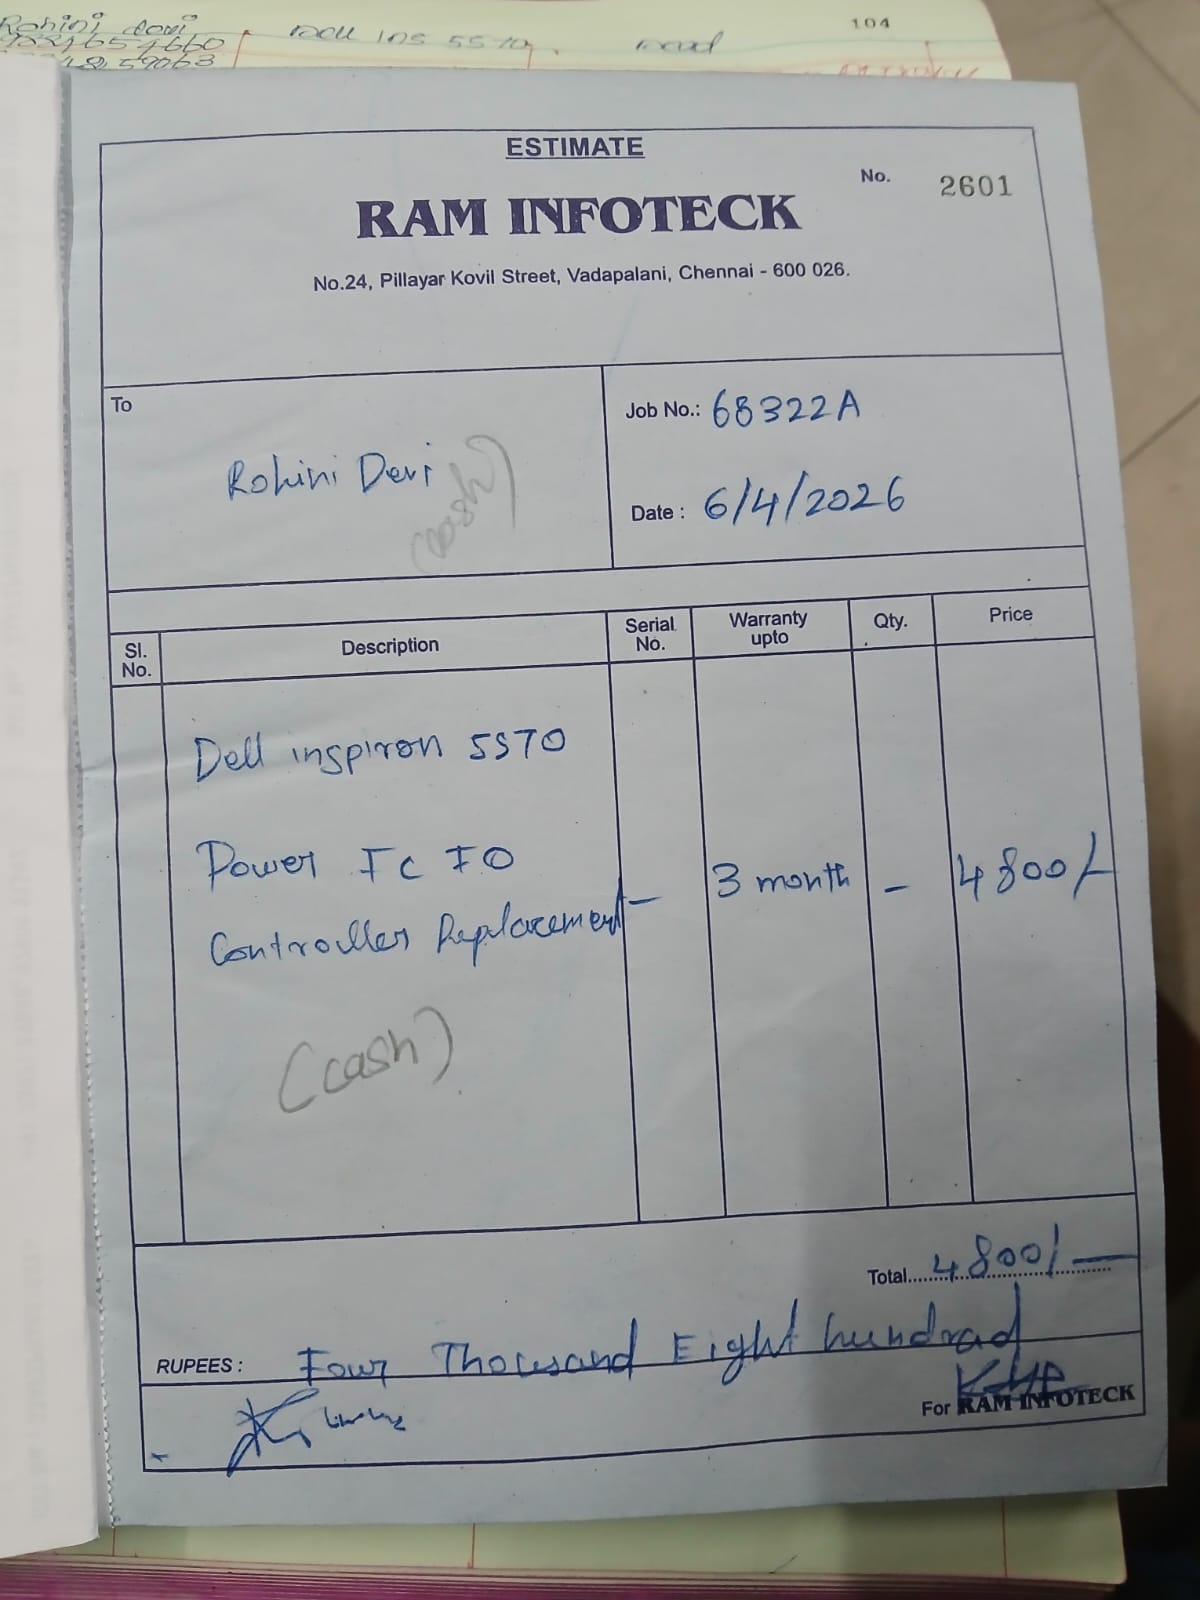 Rohini devi
Dell INS 5570.
104
ESTIMATE
No. 2601
RAM INFOTECK
No.24, Pillayar Kovil Street, Vadapalani, Chennai - 600 026.
To
Rohini Devi
(cash)
Job No.: 68322A
Date : 6/4/2026
Sl. No. Description Serial No. Warranty upto Qty. Price
Dell inspiron 5570
Power IC IO
Controller Replacement - 3 month - 4800/-
(cash)
Total 4800/-
RUPEES : Four Thousand Eight hundrad
For RAM INFOTECK